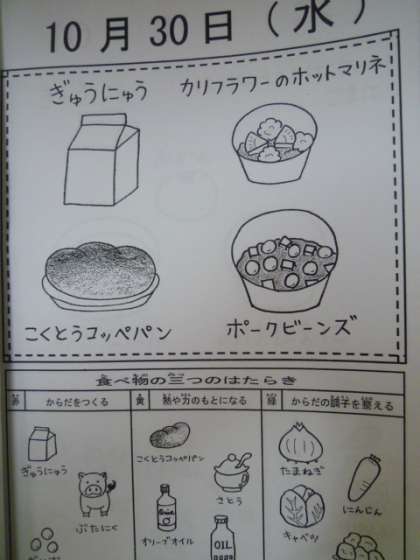 10月30日(水)
ぎゅうにゅう
カリフラワーのホットマリネ
こくとうコッペパン
ポークビーンズ
食べ物の三つのはたらき
赤 からだをつくる
黄 熱や力のもとになる
緑 からだの調子を整える
ぎゅうにゅう
ぶたにく
こくとうコッペパン
さとう
オリーブオイル
OIL
たまねぎ
にんじん
キャベツ